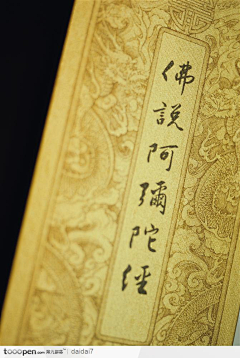 佛說阿彌陀經
tooopen.com 素材公社 daidai7